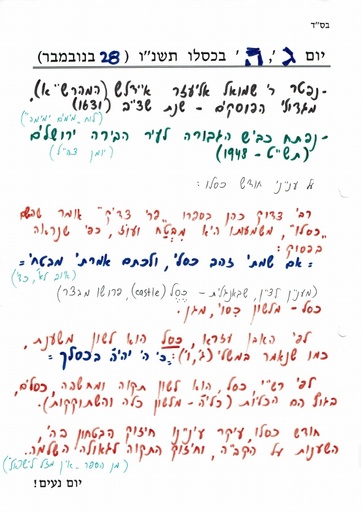 בס"ד
יום ג', ה' בכסלו תשנ"ו (28 בנובמבר)
-נפטר ר' שמואל אליעזר אידלש (המהרש"א),
מגדולי הפוסקים - שנת שצ"ב (1631)
-נפתח כביש הגבורה לעיר הבירה ירושלים
(תש"ט - 1948)
(יומן צה"ל)
על עניני חודש כסלו:
רבי צדוק כהן בספרו "פרי צדיק" אומר שהשם
"כסלו", משמעותו היא מבטח ועוז, כפי שנראה
בפסוק:
"אם שמתי זהב כסלי, ולכתם אמרתי מבטחי"
(איוב לא, כד)
(מענין לציין, שבאנגלית - כסל (castle), פרושו מבצר)
כסל - מלשון כסוי, מגן.
לפי האבן עזרא, כסל הוא לשון משענת,
כמו שנאמר במשלי (ג,ו'): "כי ה' יהיה בכסלך"
לפי רש"י, כסל, הוא לשון תקוה ומחשבה, כסלים,
בגוף הם הכליות (כליה - מלשון כלה והשתוקקות).
חודש כסלו, עיקר עינינו חיזוק הבטחון בה',
השענות על הקב"ה, וחיזוק התקוה לגאולה השלמה.
יום נעים!